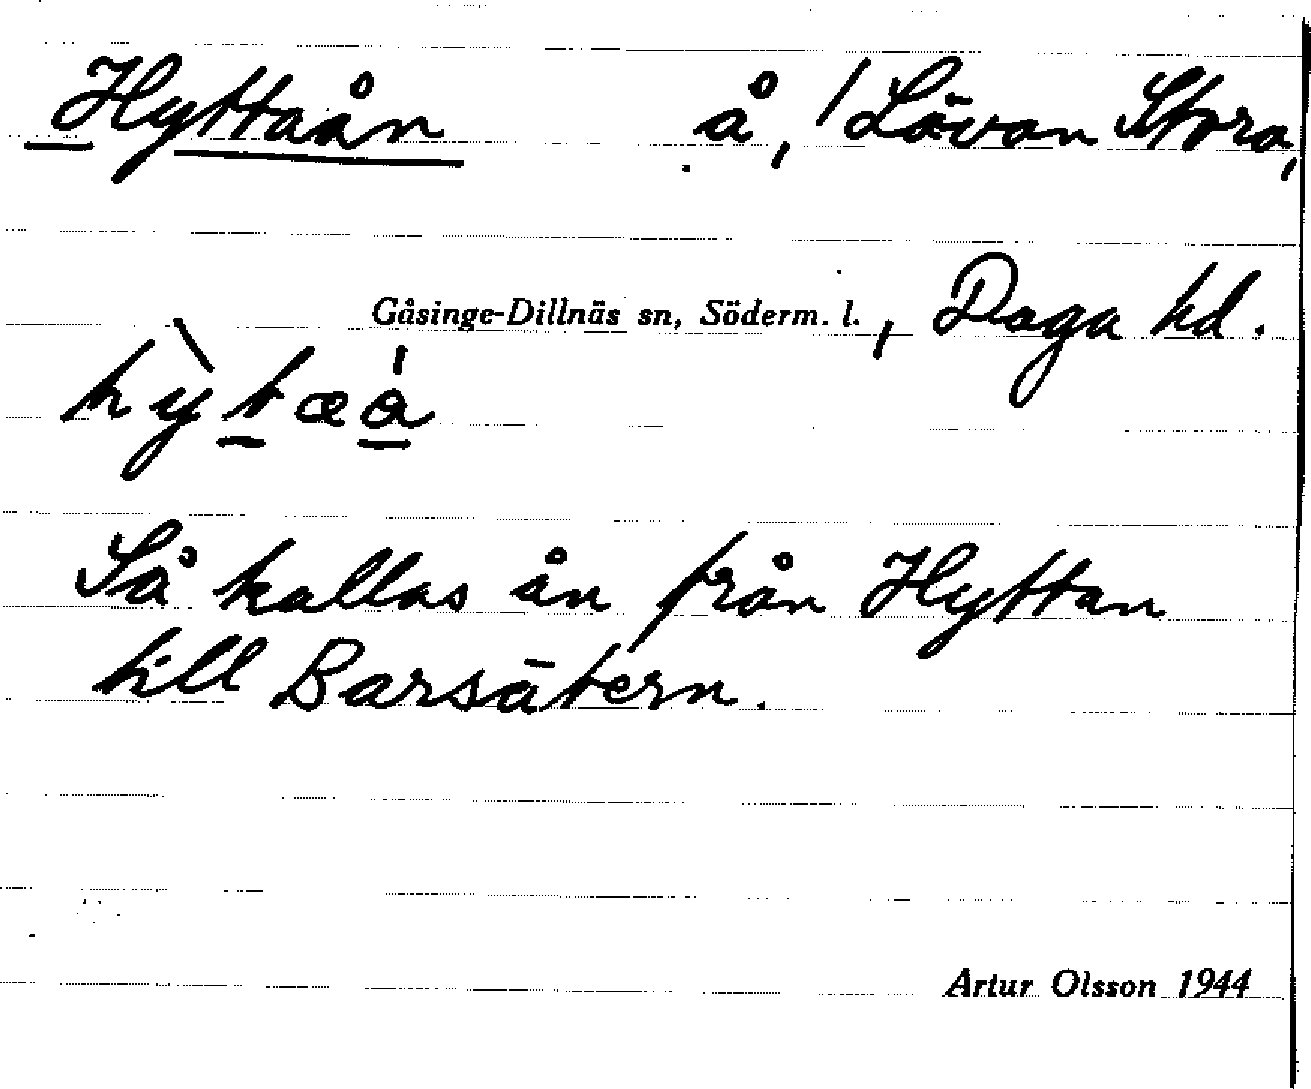 Hyttaån å, /Lövan Stora,
Gåsinge-Dillnäs sn, Söderm. l., Daga hd.
hỳtæå̀
Så kallas ån från Hyttan
till Barsätern.
Artur Olsson 1944